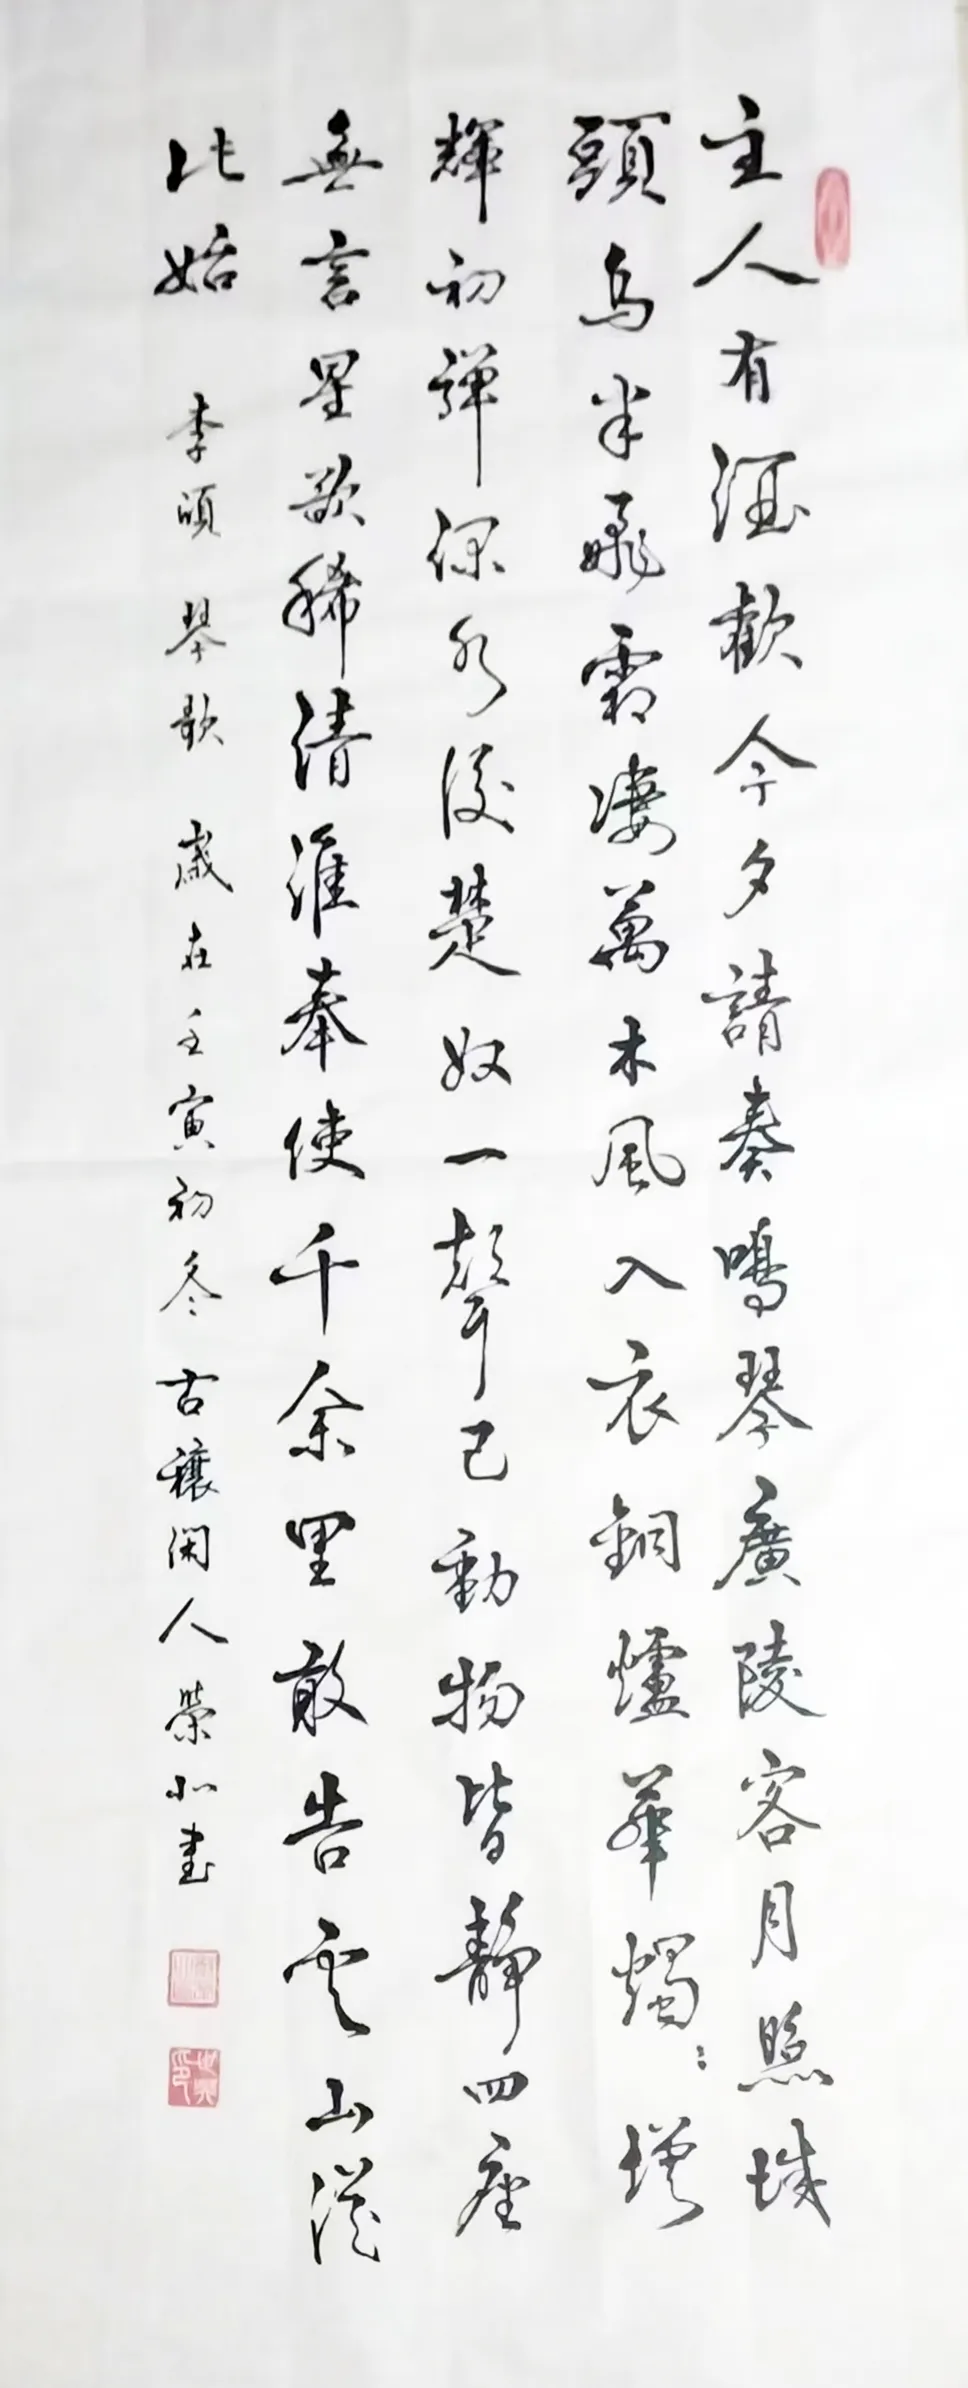 主人有酒歡今夕請奏鳴琴廣陵客月照城
頭烏半飛霜凄萬木風入衣銅爐華燭燭增
輝初彈渌水後楚奴一聲已動物皆靜四座
無言星欲稀清淮奉使千余里敢告雲山從
此始 李頎 琴歌 歲在壬寅初冬 古穰閑人榮北書